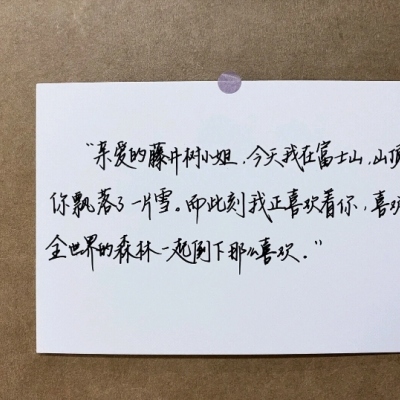 “亲爱的藤井树小姐，今天我在富士山，山顶
你飘落了一片雪。而此刻我正喜欢着你，喜欢
全世界的森林一起倒下那么喜欢。”